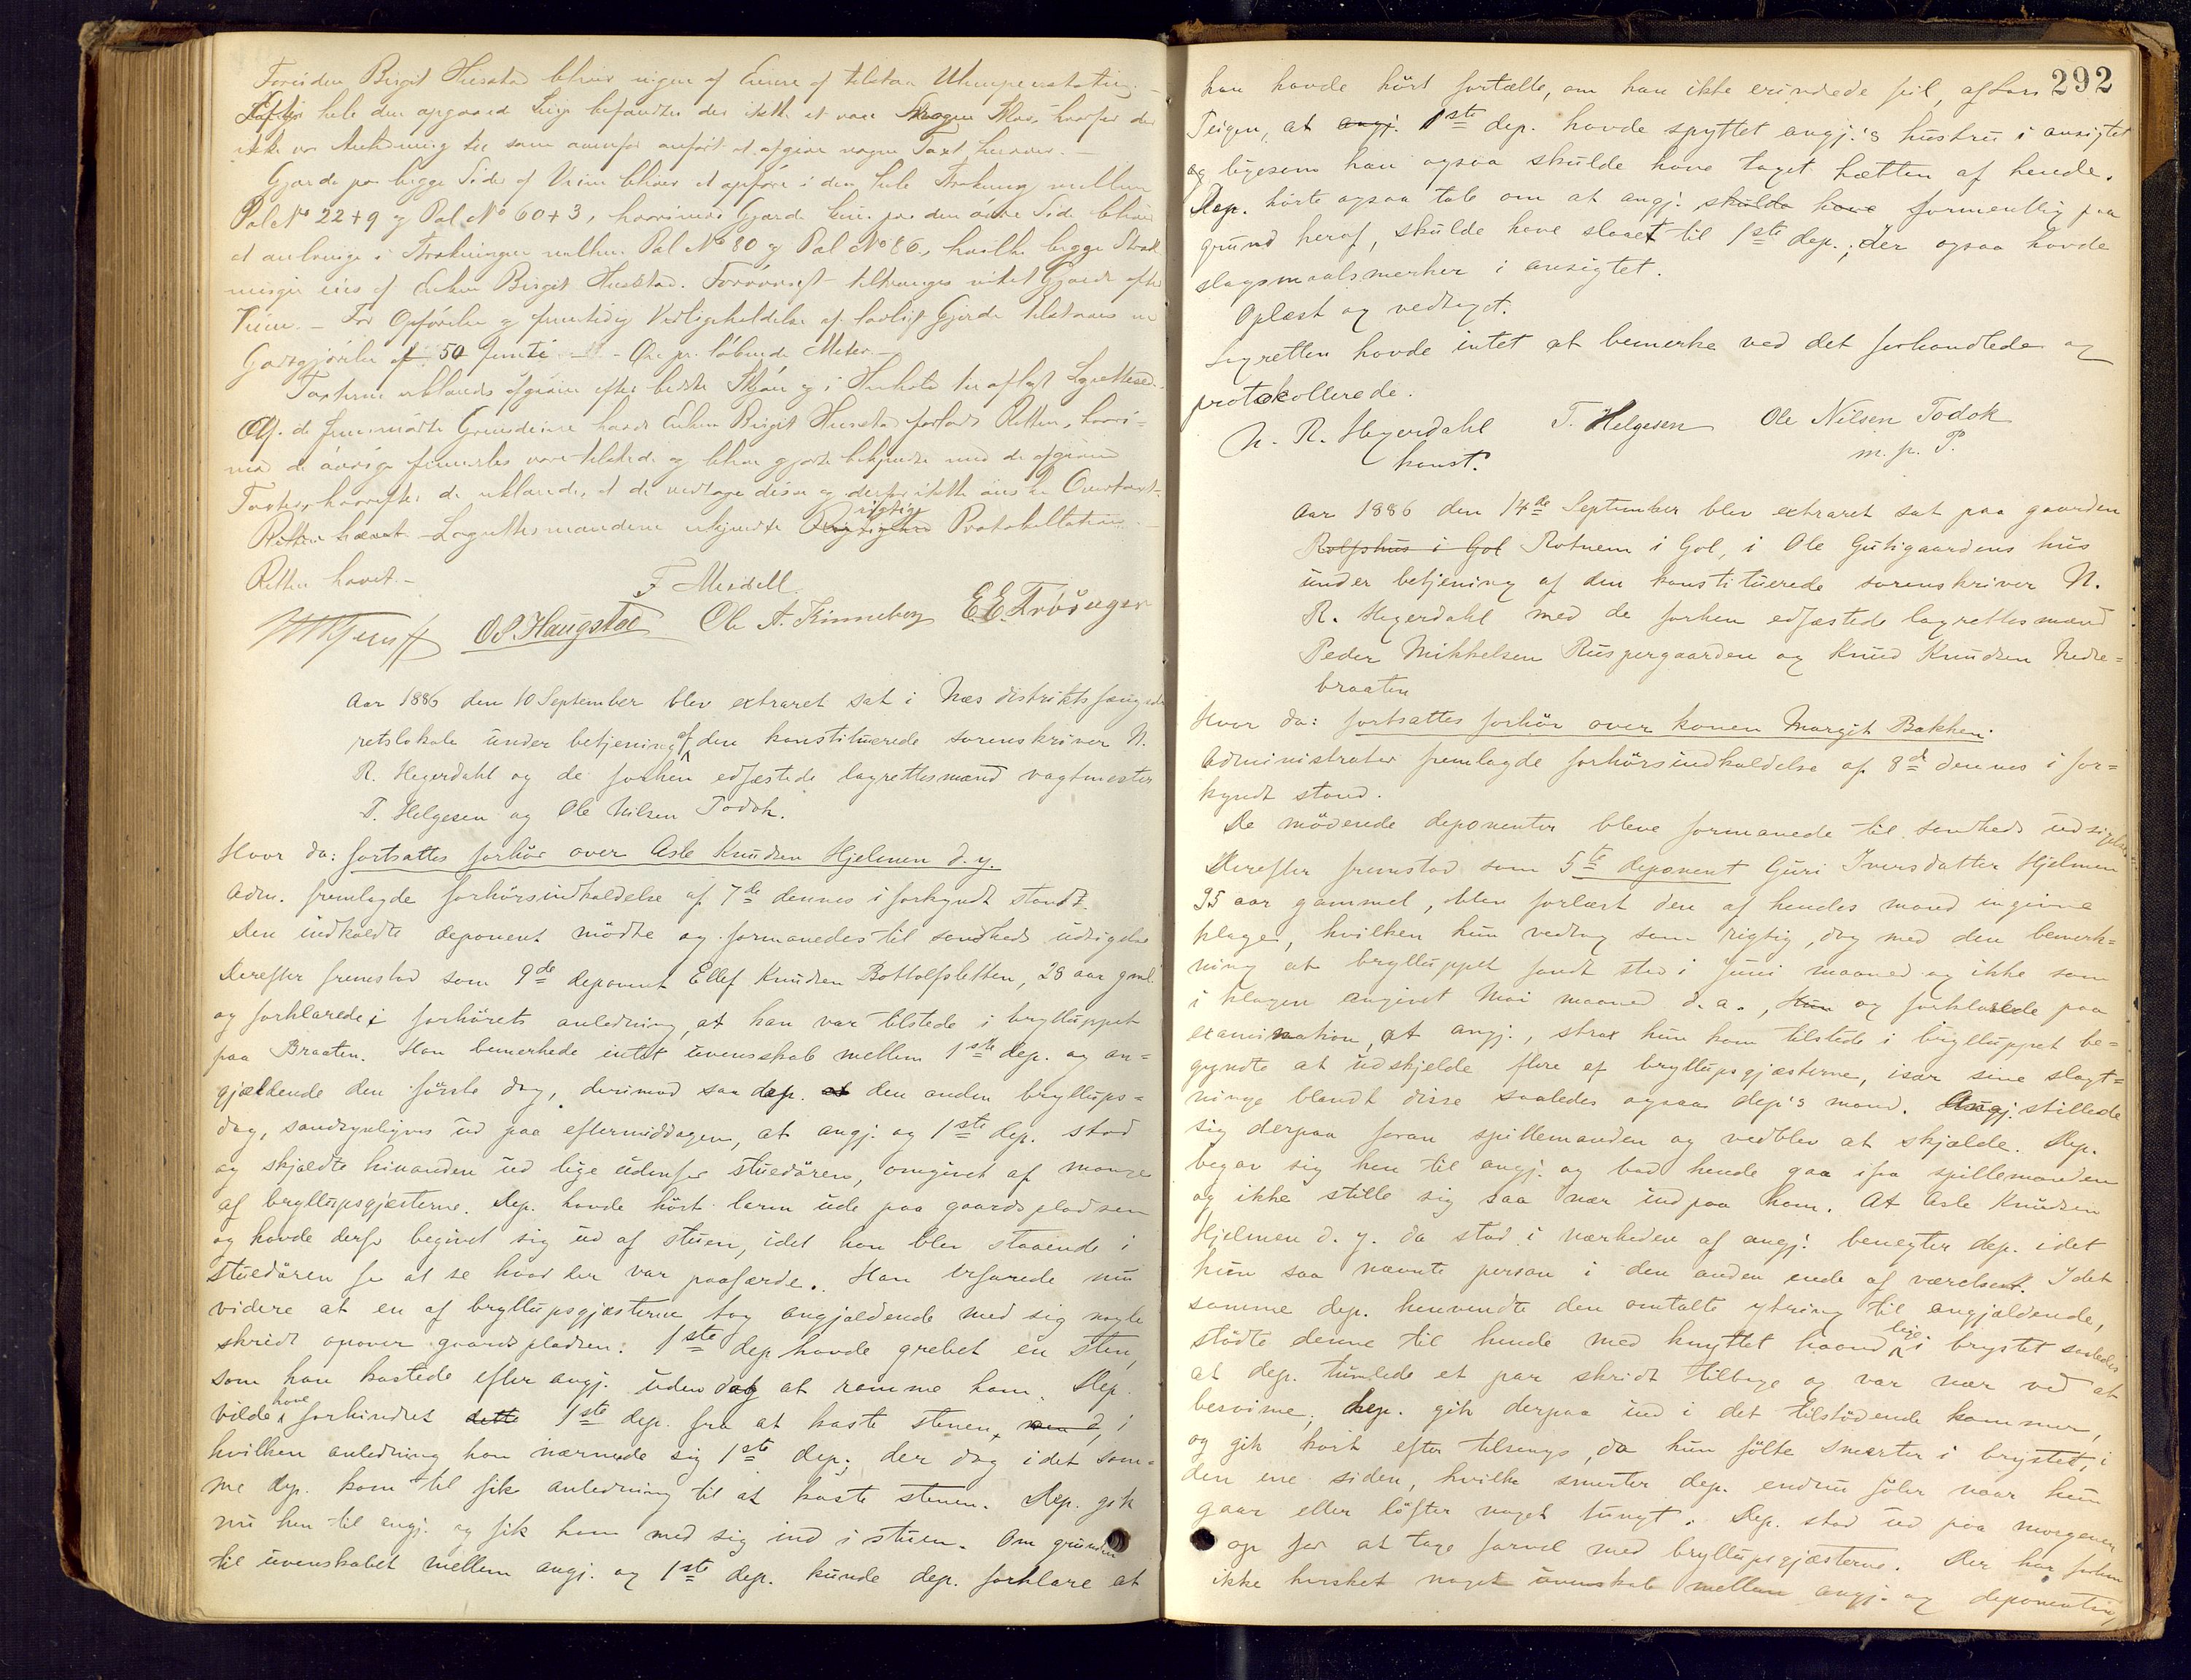 Foruden Birgit Husestad bliver ingen af Eierne at tilstaa Ulempeerstatning. –
Langs hele den opgaaede Linje befandtes der ikke at være Skov, hvorfor der
ikke var Anledning til som ovenfor anført at afgive nogen Taxt herover. –
Gjærde paa begge Sider af Veien bliver at opføre i den hele Strækning mellem
Pæl No 22+9 og Pæl No 60+3, hvorimod Gjærde kun paa den øvre Side bliver
at anbringe i Strækningen mellem Pæl No 80 og Pæl No 86, hvilke begge Stræk
ninger eies af Enken Birgit Husestad. Forøvrigt tiltrænges intet Gjærde efter
Veien. – For Opførelse og fremtidig Vedligeholdelse af lovligt Gjærde tilstaaes en
Godtgjørelse af 50 femti – Øre pr. løbende Meter. –
Taxterne erklæredes afgivne efter bedste Skjøn og i Henhold til aflagt Lagrettesed. –
Af de fremmødte Grundeiere havde Enken Birgit Husestad forladt Retten, hvori=
mod de øvrige fremdeles vare tilstede og bleve gjorte bekjendte med de afgivne
Taxter, hvorefter de erklærede, at de vedtage disse og derfor ikke ønske Overtaxt. –
Retten hævet – Lagrettesmændene erkjendte rigtig Protokollation. –
Retten hævet. –
F Mesdell
O. P. Haugstad Ole A. Kinneberg E. E. Trøseyer
Aar 1886 den 10 September blev extraret sat i Næs distriktsfængsels
retslokale under betjening af den konstituerede sorenskriver N.
R. Hegerdahl og de forhen edfæstede lagrettesmænd vagtmester
T. Helgesen og Ole Nilsen Todok.
Hvor da: fortsattes forhør over Asle Knudsen Hjelmen d. y.
Adm. fremlagde forhørsindkaldelse af 7de dennes i forkyndt stand.
Den indkaldte deponent mødte og formanedes til sandheds udsigelse
Derefter fremstod som 9de deponent Ellef Knudsen Bottolfsletten, 28 aar gml.
og forklarede i forhørets anledning, at han var tilstede i brylluppet
paa Braaten. Han bemerkede intet uvenskab mellem 1ste dep. og an=
gjældende den første dag, derimod saa dep. at den anden bryllups=
dag, sandsynligvis ud paa eftermiddagen, at angj. og 1ste dep. stod
og skjældte hinanden ud lige udenfor stuedøren, omgivet af mange
af bryllupsgjæsterne. Dep. havde hørt larm ude paa gaardspladsen
og havde derfor begivet sig ud af stuen, idet han blev staaende i
stuedøren for at se hvad der var paafærde. Han erfarede nu
videre at en af bryllupsgjæsterne tog angjældende med sig nogle
skridt opover gaardspladsen. 1ste dep havde grebet en sten,
som han kastede efter angj. uden dog at ramme ham. Dep.
vilde have forhindret dette 1ste dep. fra at kaste stenen, i
hvilken anledning han nærmede sig 1ste dep., der dog idet sam=
me dep. kom til fik anledning til at kaste stenen. Dep. gik
nu hen til angj. og fik ham med sig ind i stuen. Om grunden
til uvenskabet mellem angj. og 1ste dep. kunde dep. forklare at
292
han havde hørt fortælle, om han ikke erindrede feil, af Lars
Teigen, at angj. 1ste dep. havde spyttet angj.'s hustru i ansigtet
og ligesom han ogsaa skulde have taget hætten af hende.
Dep. hørte ogsaa tale om at angj. skulde have formentlig paa
grund heraf, skulde have slaaet til 1ste dep., der ogsaa havde
slagsmaalsmerker i ansigtet.
Oplæst og vedtaget.
Lagretten havde intet at bemerke ved det forhandlede og
protokollerede.
N. R. Hegerdahl T. Helgesen Ole Nilsen Todok
konst. m. p. P.
Aar 1886 den 14de September blev extraret sat paa gaarden
Rolfshus i Gol Rotnem i Gol, i Ole Gutigaardens hus
under betjening af den konstituerede sorenskriver N.
R. Hegerdahl med de forhen edfæstede lagrettesmænd
Peder Mikkelsen Ruspergaarden og Knud Knudsen Nedre=
braaten
Hvor da: fortsattes forhør over konen Margit Bakken.
Administrator fremlagde forhørsindkaldelse af 8de dennes i for=
kyndt stand.
De mødende deponenter bleve formanede til sandheds udsigelse
Derefter fremstod som 5te deponent Guri Iversdatter Hjelmen
35 aar gammel, blev forlæst den af hendes mand ingivne
klage, hvilken hun vedtog som rigtig, dog med den bemerk=
ning at brylluppet fandt sted i Juni maaned og ikke som
i klagen angivet Mai maaned d. a., Hun og forklarede paa
examination, at angj., strax hun kom tilstede i brylluppet be=
gyndte at udskjelde flere af bryllupsgjæsterne, især sine slægt=
ninge blandt disse saaledes ogsaa dep's mand. Angj. stillede
sig derpaa foran spillemanden og vedblev at skjælde. Dep.
begav sig hen til angj. og bad hende gaa ifra spillemanden
og ikke stille sig saa nær indpaa ham. At Asle Knudsen
Hjelmen d. y. da stod i nærheden af angj. benegter dep. idet
hun saa nævnte person i den anden ende af værelset. Idet
samme dep. henvendte den omtalte ytring til angjældende,
stødte denne til hende med knyttet haand lige i brystet saaledes
at dep. tumlede et par skridt tilbage og var nær ved at
besvime; Dep. gik derpaa ind i det tilstødende kammer,
og gik kort efter tilsengs, da hun følte smerter i brystet, i
den ene siden, hvilke smerter dep. endnu føler naar hun
gaar eller løfter noget tungt. Dep. stod ud paa morgenen
op for at tage farvel med bryllupsgjæsterne. Der har forhen
ikke hersket noget uvenskab mellem angj. og deponentin,